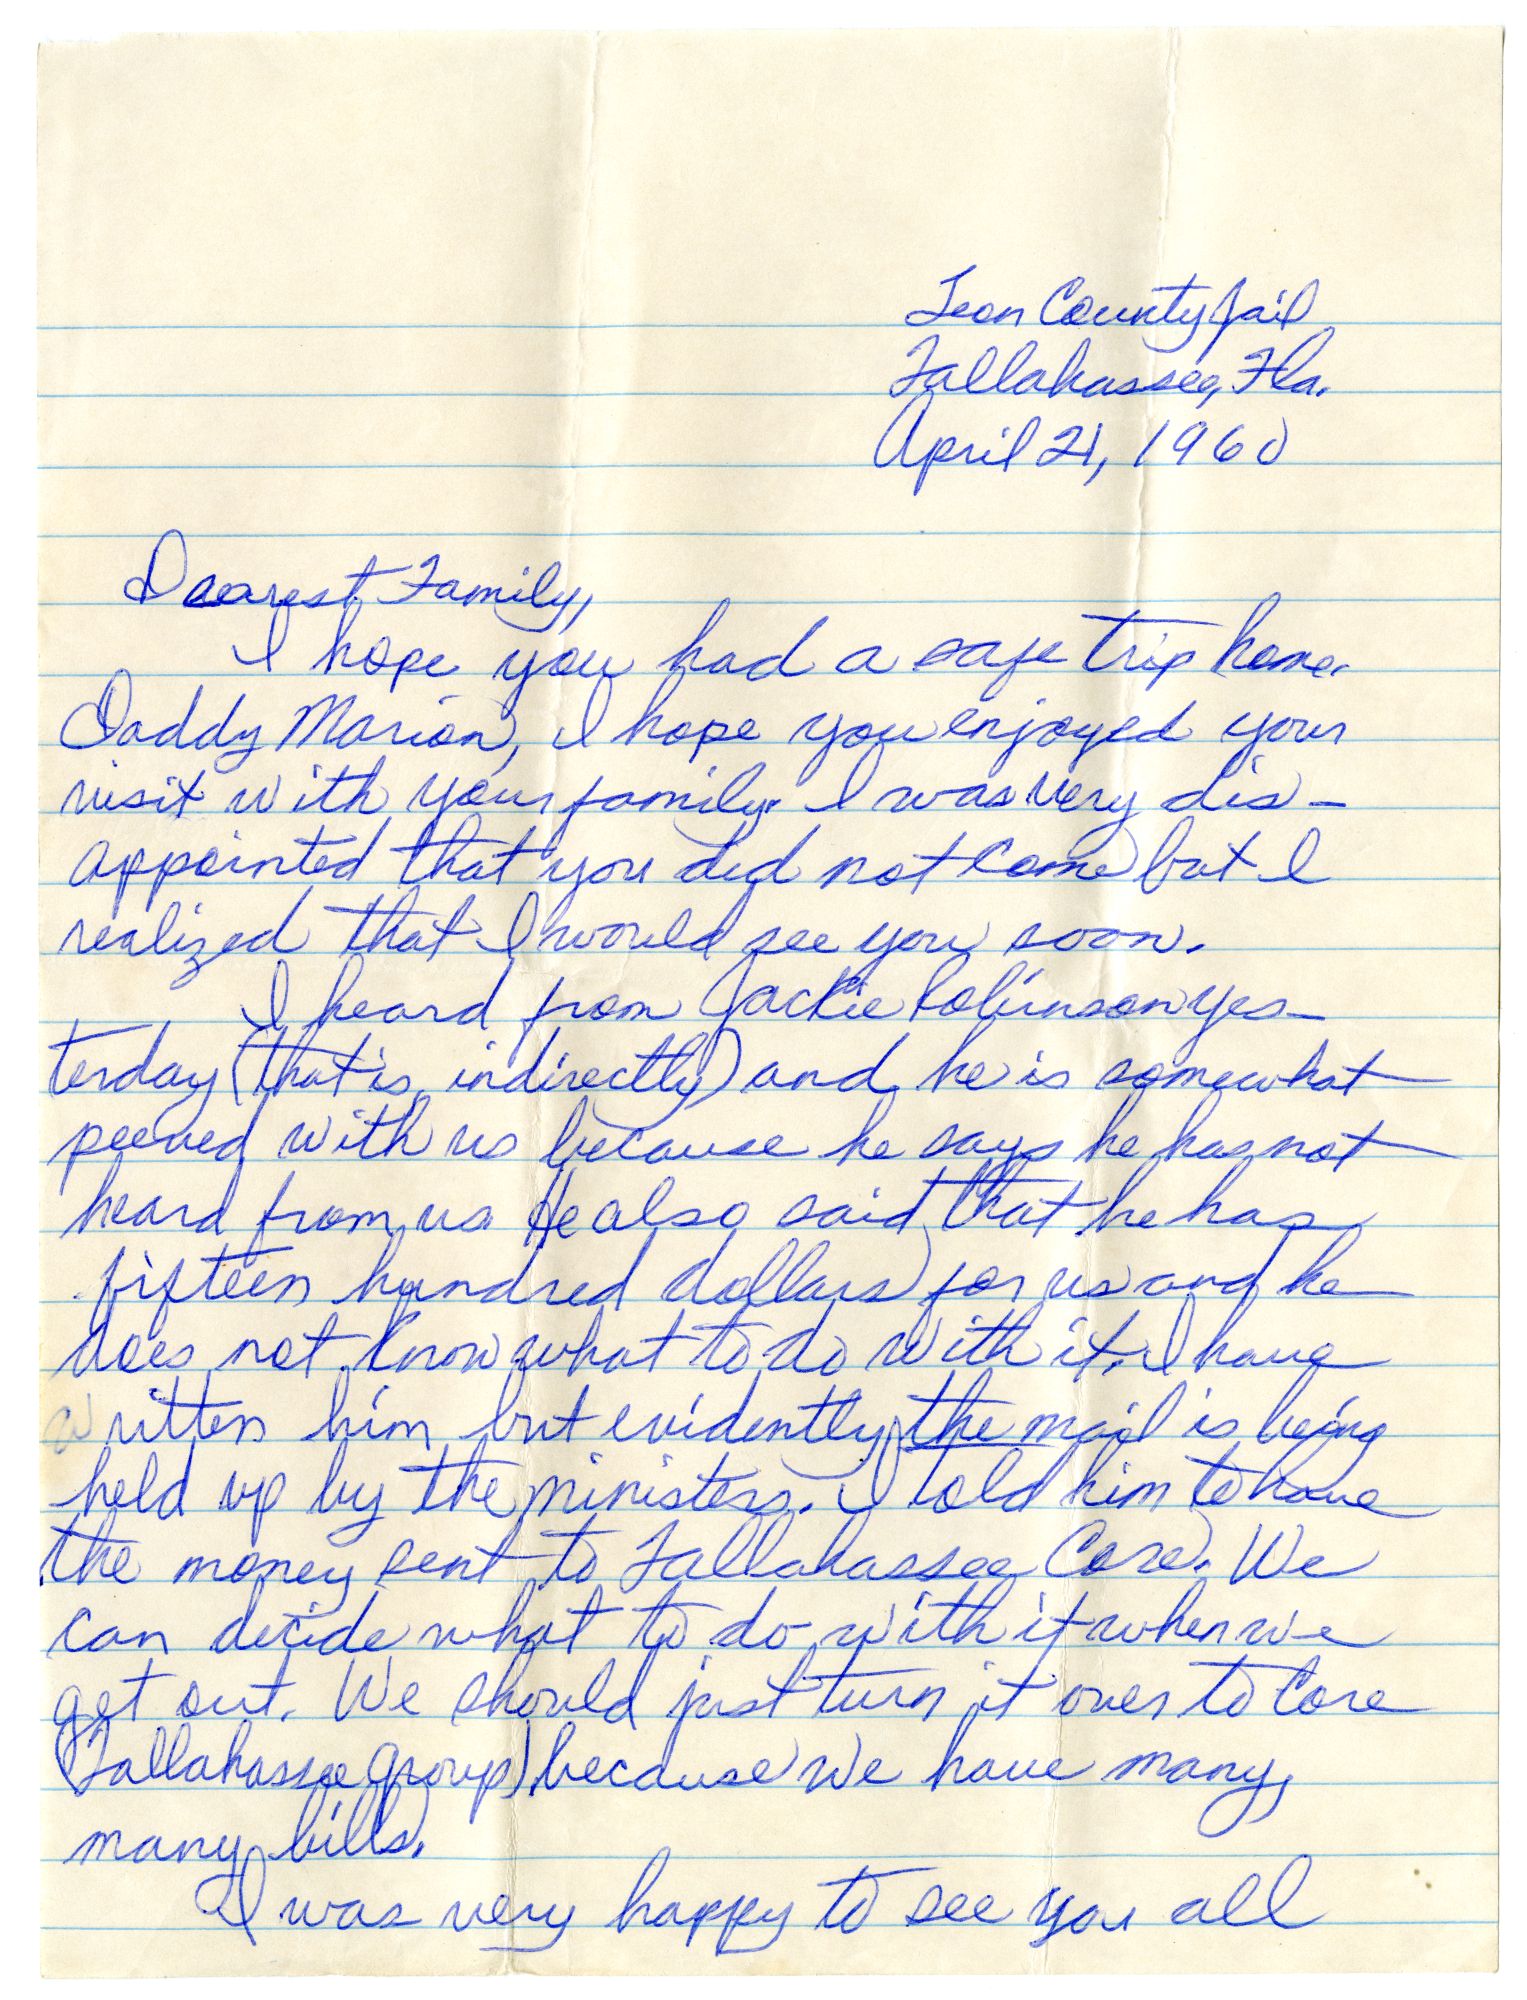 Leon County Jail
Tallahassee, Fla.
April 21, 1960
Dearest Family,
I hope you had a safe trip home.
Daddy Marion, I hope you enjoyed your
visit with your family. I was very dis-
appointed that you did not come but I
realized that I would see you soon.
I heard from Jackie Robinson yes-
terday (that is, indirectly) and he is somewhat
peeved with us because he says he has not
heard from us. He also said that he has
fifteen hundred dollars for us and he
does not know what to do with it. I have
written him but evidently the mail is being
held up by the ministers. I told him to have
the money sent to Tallahassee Core. We
can decide what to do with it when we
get out. We should just turn it over to Core
(Tallahassee group) because we have many,
many bills.
I was very happy to see you all